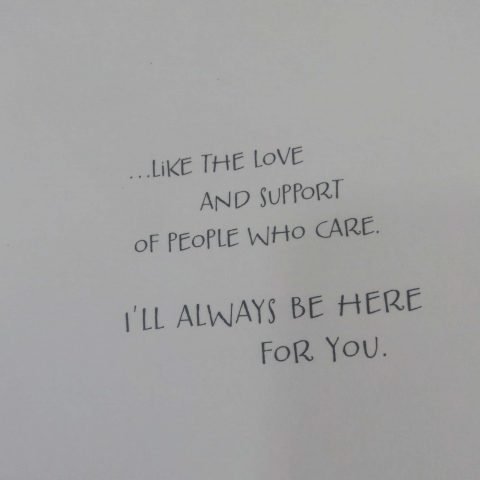 ...LiKE THE LoVE
AND SUPPoRT
oF PEoPLE WHo CARE.
I'LL ALWAYS BE HERE
FoR YoU.